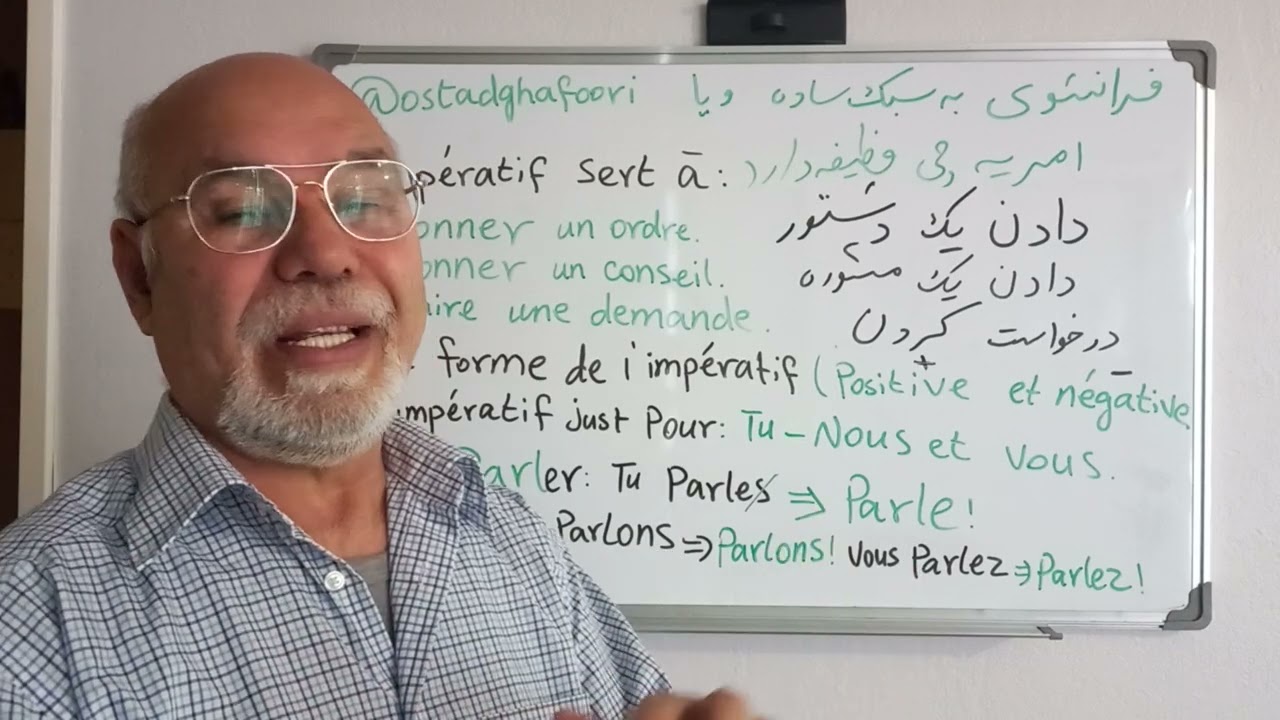 @ostadghafoori فرانسوی به سبک ساده و یا
pératif sert à : امریه چی وظیفه دارد
onner un ordre. دادن یک دستور
onner un conseil. دادن یک مشوره
ire une demande. درخواست کردن
forme de i'impératif (Positive et négative
+ −
mpératif just Pour: Tu - Nous et vous.
arler: Tu Parles ⇒ Parle!
Parlons ⇒ Parlons! Vous Parlez ⇒ Parlez!